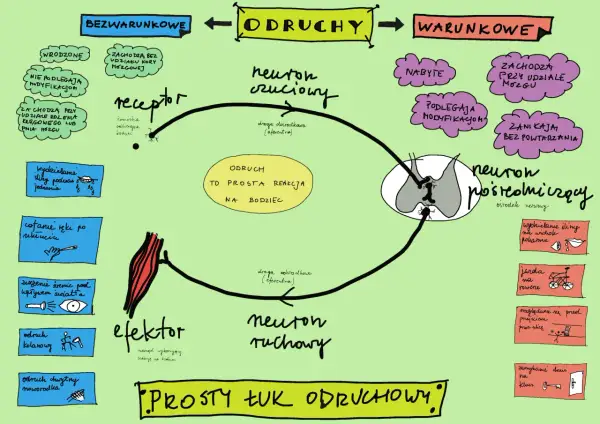 BEZWARUNKOWE
ODRUCHY
WARUNKOWE
WRODZONE
ZACHODZĄ BEZ
UDZIAŁU KORY
MÓZGOWEJ
NIE PODLEGAJĄ
MODYFIKACJOM
ZACHODZĄ PRZY
UDZIALE RDZENIA
KRĘGOWEGO LUB
PNIA MÓZGU
NABYTE
ZACHODZĄ
PRZY UDZIALE
MÓZGU
PODLEGAJĄ
MODYFIKACJOM
ZANIKAJĄ
BEZ POWTARZANIA
receptor
neuron
czuciowy
droga dośrodkowa
(aferentna)
ODRUCH
TO PROSTA REAKCJA
NA BODZIEC
neuron
pośredniczący
ośrodek nerwowy
droga odśrodkowa
(eferentna)
neuron
ruchowy
efektor
wydzielanie
śliny podczas
jedzenia
cofanie ręki po
ukłuciu
zwężenie źrenic pod
wpływem światła
odruch
kolanowy
odruch chwytny
noworodka
wydzielanie śliny
na widok
pokarmu
jazda
na
rowerze
rozglądanie się przed
przejściem
przez ulicę
zamykanie drzwi
na
klucz
PROSTY ŁUK ODRUCHOWY